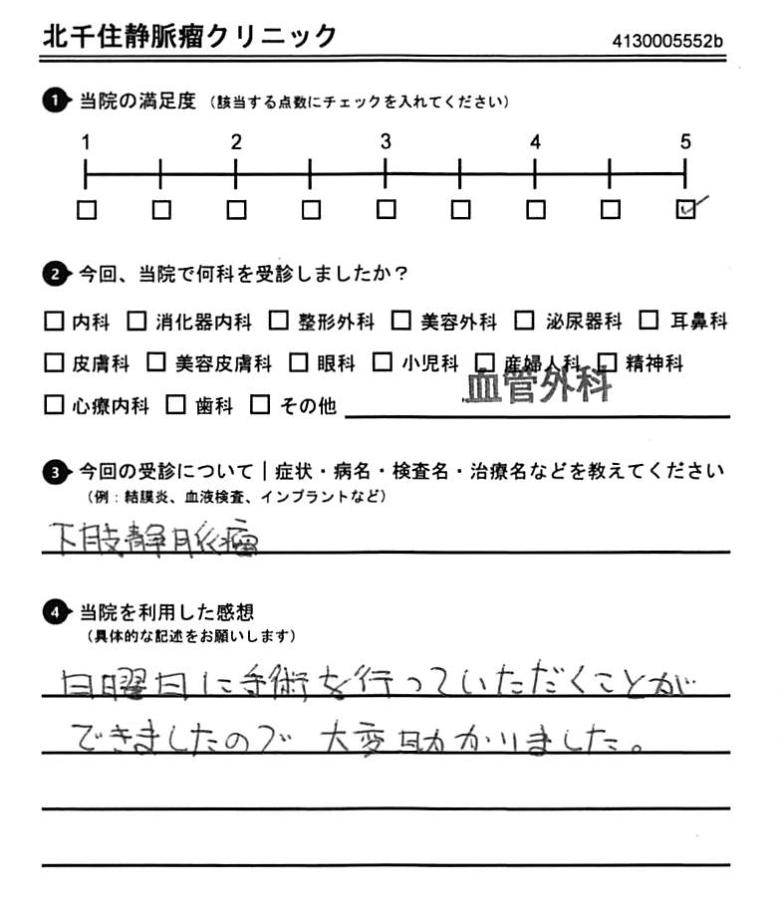 北千住静脈瘤クリニック 4130005552b
1 当院の満足度 (該当する点数にチェックを入れてください)
1 2 3 4 5
2 今回、当院で何科を受診しましたか？
内科 消化器内科 整形外科 美容外科 泌尿器科 耳鼻科
皮膚科 美容皮膚科 眼科 小児科 産婦人科 精神科
血管外科
心療内科 歯科 その他
3 今回の受診について｜症状・病名・検査名・治療名などを教えてください
(例：結膜炎、血液検査、インプラントなど)
下肢静脈瘤
4 当院を利用した感想
(具体的な記述をお願いします)
日曜日に手術を行っていただくことが
できましたので 大変助かりました。